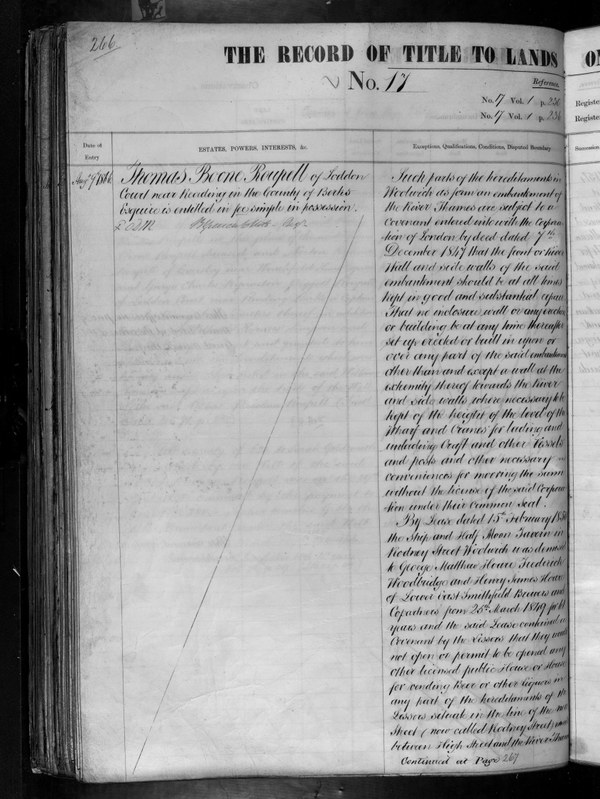 266
THE RECORD OF TITLE TO LANDS
ON
No. 17
Reference.
No. 17 Vol. 1 p. 236
No. 17 Vol. 1 p. 236
Register
Register
Date of
Entry
ESTATES, POWERS, INTERESTS, &c.
Exceptions, Qualifications, Conditions, Disputed Boundary
Augt 7
Thomas Boone Roupell of Loddon
Court near Reading in the County of Berks
Esquire is entitled in fee simple in possession.
Such parts of the hereditaments in
Woolwich as form an embankment of
the River Thames are subject to a
Covenant entered into with the Corpora
tion of London by deed dated 7th
December 1847 that the front or River
Wall and side walls of the said
embankment should be at all times
kept in good and substantial repair
That no inclosure wall or any erection
or building be at any time thereafter
set up erected or built in upon or
over any part of the said embankment
other than and except a wall at the
extremity thereof towards the River
and side walls where necessary to be
kept of the height of the level of the
Wharf and Cranes for lading and
unlading Craft and other Vessels
and posts and other necessary
conveniences for mooring the same
without the license of the said Corpora
tion under their Common Seal.
By Lease dated 15th February
the Ship and Half Moon Tavern in
Rodney Street Woolwich was demised
to George Matthew Hoare Frederick
Woodbridge and Henry James Hoare
of Lower East Smithfield Brewers and
Copartners from 25th March 1849 for
years and the said Lease contained a
Covenant by the Lessors that they would
not open or permit to be opened any
other licensed public House or House
for vending Beer or other Liquors in
any part of the hereditaments of the
Lessors situate in the line of the new
Street (now called Rodney Street)
between High Street and the River Thames
Continued at Page 267